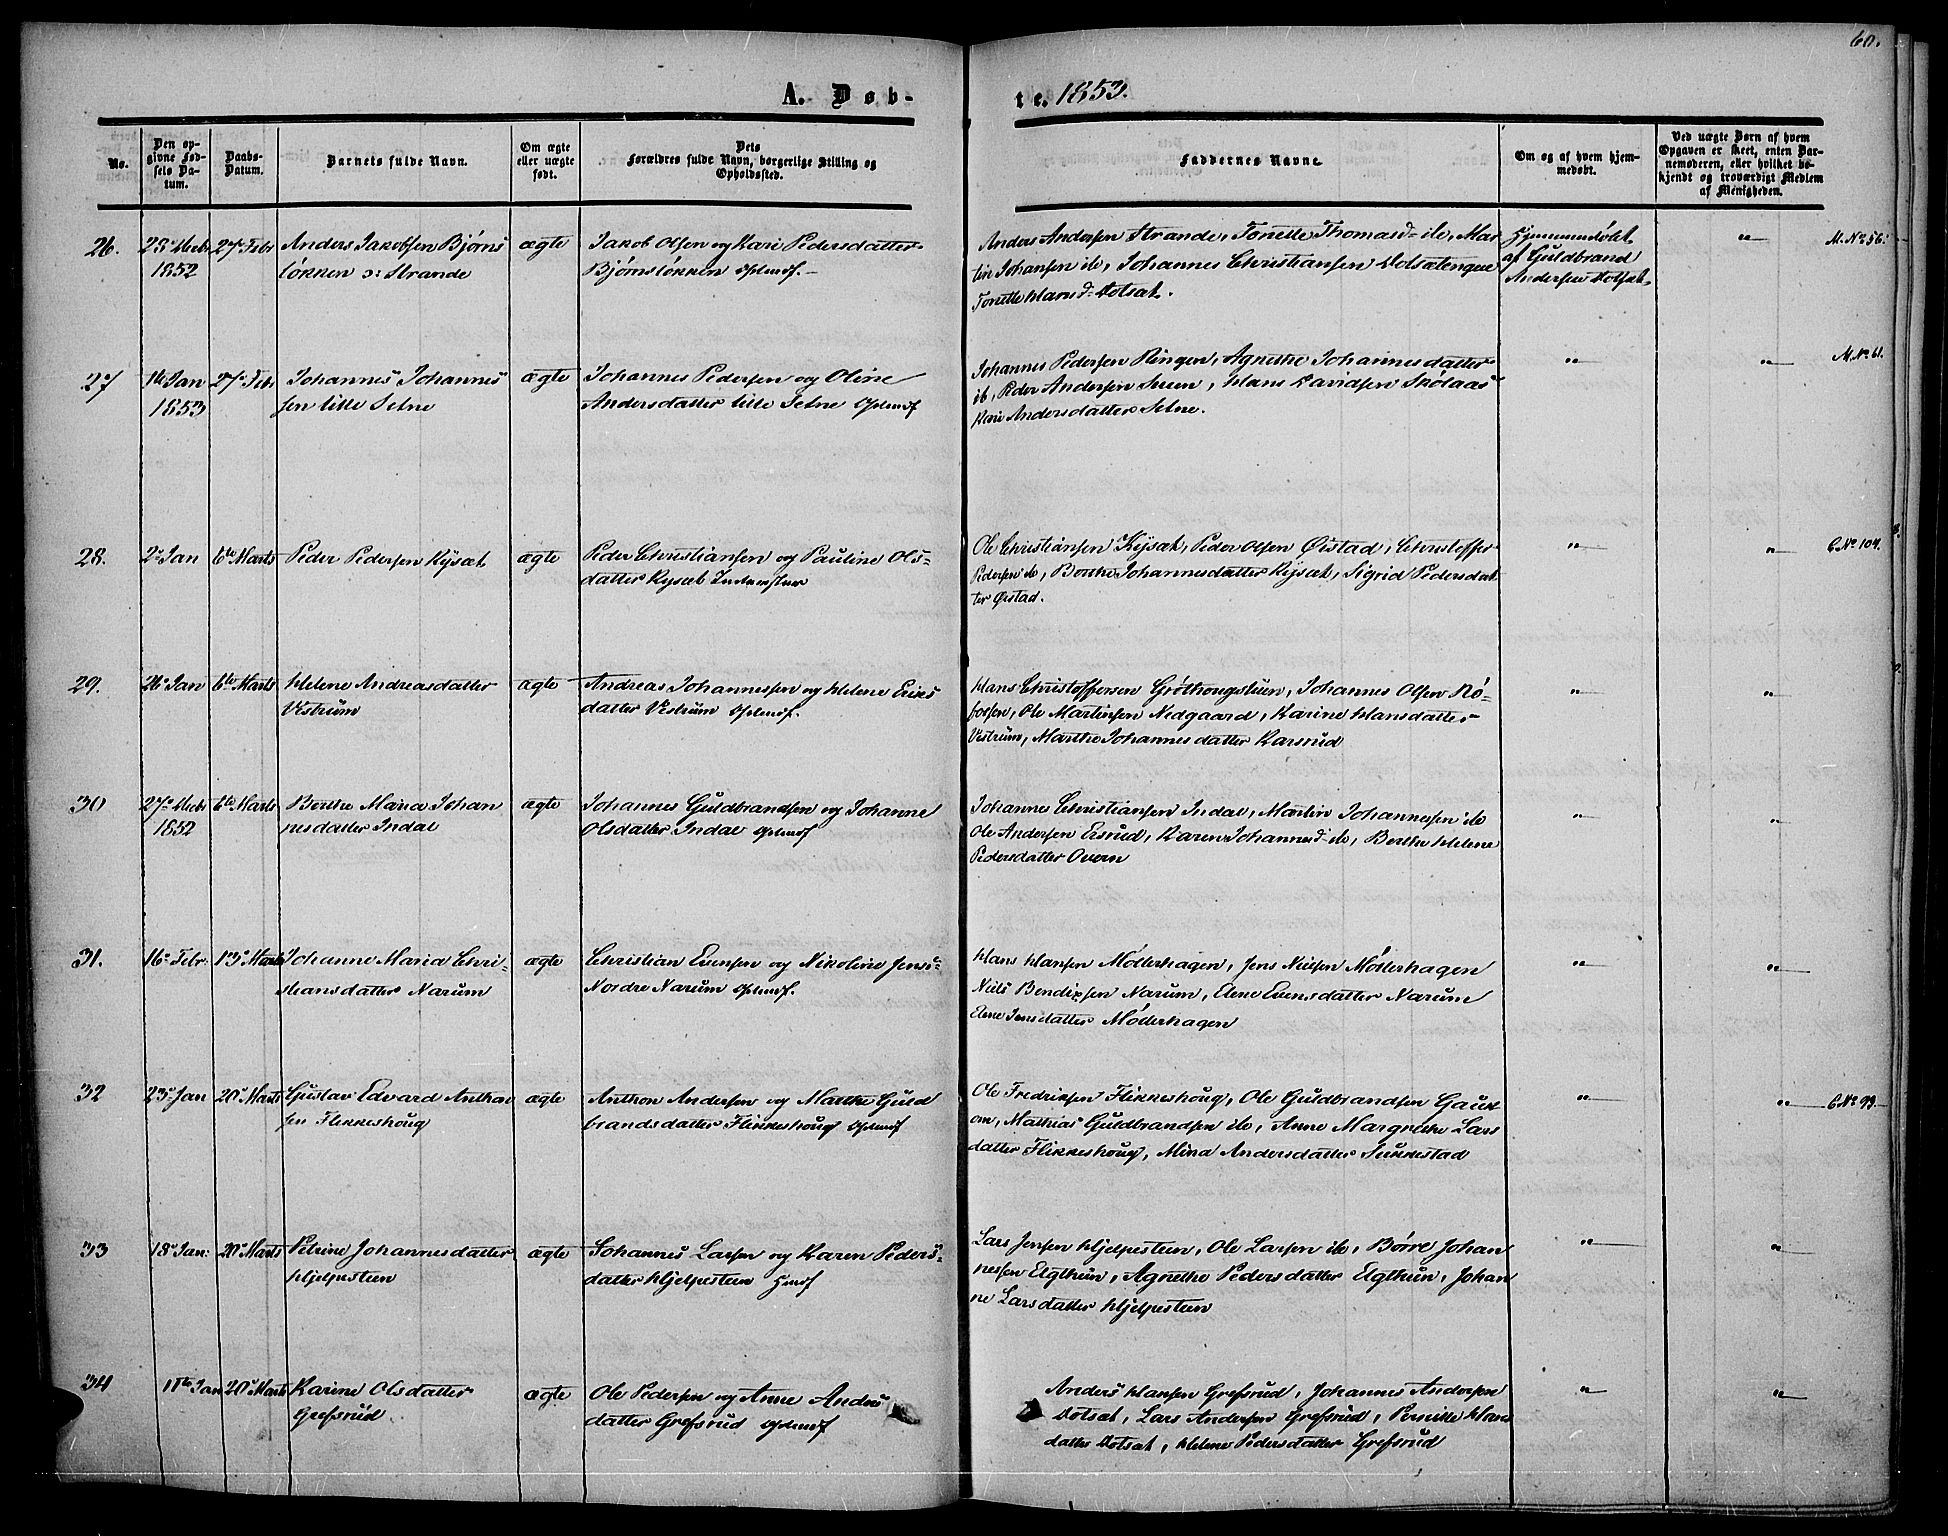 60.
A. Døb-
te. 1853.
No.
Den op-
givne Fød-
sels Da-
tum.
Daabs-
Datum.
Barnets fulde Navn.
Om ægte
eller uægte
født.
Dets
Forældres fulde Navn, borgerlige Stilling og
Opholdssted.
Faddernes Navne.
Om og af hvem hjem-
medøbt.
Ved uægte Børn af hvem
Opgaven er skeet, enten Bar-
nemoderen, eller hvilket be-
kjendt og troværdigt Medlem
af Menigheden.
26.
1852
27 Febr
Anders Jakobsen Bjørns
løkken o: Strande
ægte
Jakob Olsen og Kari Pedersdatter
Bjørnsløkken
Anders Andersen Strande, Tonette Thomasd- ib, Mar
tin Johansen ib, Johannes Christiansen
Tonette Hansd- Dolsæt.
Hjemmedøbt
af Guldbrand
Andersen Dolsæt
"
M. No 56.
27
14 Jan
1853
27 Febr
Johannes Johannes
sen lille Setne
ægte
Johannes Pedersen og Oline
Andersdatter lille Setne
Johannes Pedersen Ringen, Agnethe Johannesdatter
ib, Peder Andersen Sveen, Hans Davidsen Skølaas
Kari Andersdatter Setne.
"
"
M. No 61.
28.
2 Jan
6te Marts
Peder Pedersen Kysæt
ægte
Peder Christiansen og Pauline Ols-
datter Kysæt
Ole Christiansen Kysæt, Peder Olsen Øistad, Christoffer
Pedersen ib, Berthe Johannesdatter Kysæt, Sigrid Pedersdat
ter Øistad.
"
"
C No 104.
29.
26 Jan
6te Marts
Helene Andreasdatter
Vestrum
ægte
Andreas Johannessen og Helene Eriks
datter Vestrum
Hans Christoffersen Grøthougstuen, Johannes Olsen Rø-
folsen, Ole Martinsen Nedgaard, Karine Hansdatter
Vestrum, Marthe Johannesdatter Karsrud
"
"
30
1852
6te Marts
Berthe Maria Johan
nesdatter Indal
ægte
Johannes Guldbrandsen og Johanne
Olsdatter Indal
Johanne Christiansen Indal, Martin Johannessen ib
Ole Andersen Ersrud, Karen Johannesd- ib, Berthe Helene
Pedersdatter Overn
"
"
31.
16 Febr:
13 Marts
Johanne Maria Chri-
stiansdatter Narum
ægte
Christian Evensen og Nikoline Jens-
Nordre Narum
Hans Hansen Møllerhagen, Jens Nielsen Møllerhagen
Niels Bendixsen Narum, Elene Evensdatter Narum
Elene Jensdatter Møllerhagen
"
"
32
23 Jan
20 Marts
Gustav Edvard Anthon
sen Flikkeshoug
ægte
Anthon Andersen og Marthe Guld
brandsdatter Flikkeshoug
Ole Fredriksen Flikkeshoug, Ole Guldbrandsen Gaux
om, Mathias Guldbrandsen ib, Anne Margrethe Lars
datter Flikkeshoug, Mina Andersdatter Sukkestad
"
"
C No 99.
33
18 Jan:
20 Marts
Petrine Johannesdatter
Hjelpesteen
ægte
Johannes Larsen og Karen Peders-
datter Hjelpesteen
Lars Jensen Hjelpesteen, Ole Larsen ib, Børre Johan
nessen Elgthun, Agnethe Pedersdatter Elgthun, Johan
ne Larsdatter Hjelpesteen
"
"
34
11te Jan
20 Marts
Karine Olsdatter
Grefsrud
ægte
Ole Pedersen og Anne Anders
datter Grefsrud
Anders Hansen Grefsrud, Johannes Andersen
Dolsæt, Lars Andersen Grefsrud, Pernille Hans
datter Dolsæt, Helene Pedersdatter Grefsrud
"
"